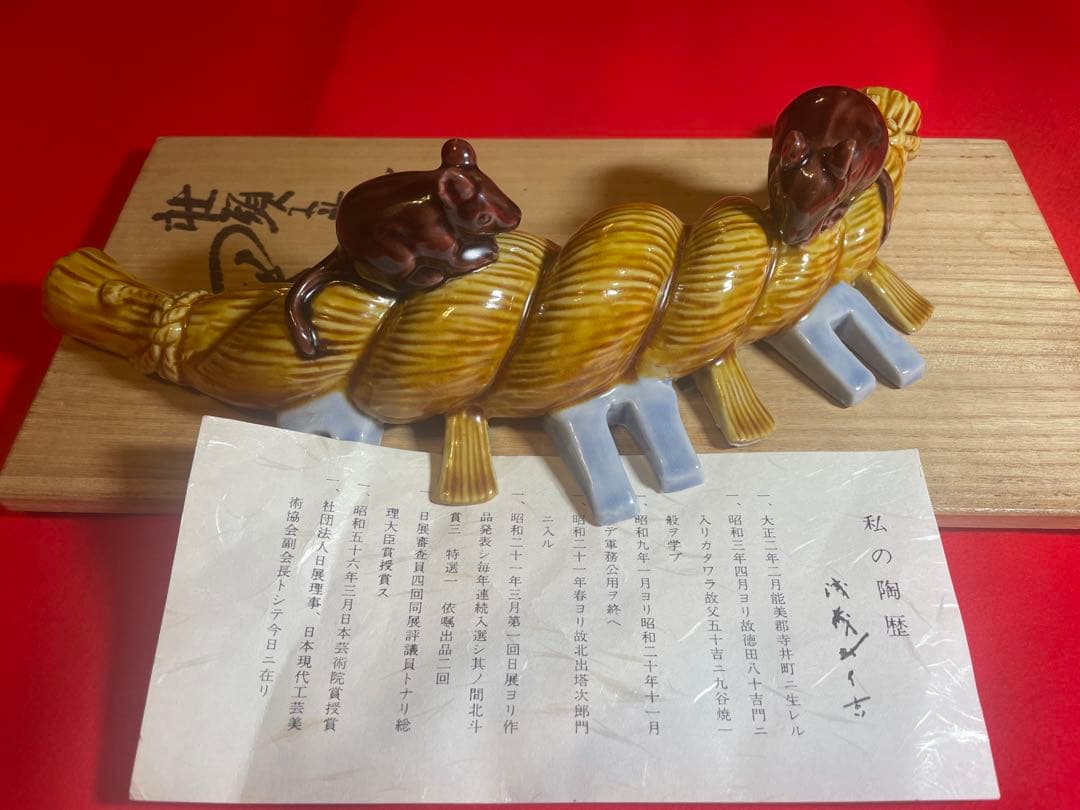 私の陶歴
一、大正二年二月能美郡寺井町ニ生レル
一、昭和三年四月ヨリ故徳田八十吉門ニ
入リカタワラ故父五十吉ニ九谷焼一
般ヲ学ブ
一、昭和九年一月ヨリ昭和二十年十一月
デ軍務公用ヲ終ヘ
一、昭和二十一年春ヨリ故北出塔次郎門
ニ入ル
一、昭和二十一年三月第一回日展ヨリ作
品発表シ毎年連続入選シ其ノ間北斗
賞三 特選一 依嘱出品二回
日展審査員四回同展評議員トナリ総
理大臣賞授賞ス
一、昭和五十六年三月日本芸術院賞授賞
一、社団法人日展理事、日本現代工芸美
術協会副会長トシテ今日ニ在リ